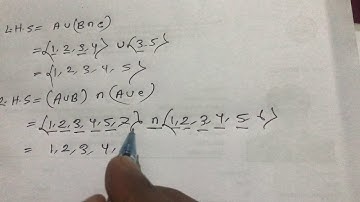 L.H.S = A∪(B∩C)
= {1, 2, 3, 4} ∪ {3.5}
= {1, 2, 3, 4, 5}
R.H.S = (A∪B) ∩ (A∪C)
= {1, 2, 3, 4, 5, 7} ∩ {1, 2, 3, 4, 5, 6}
= 1, 2, 3, 4,